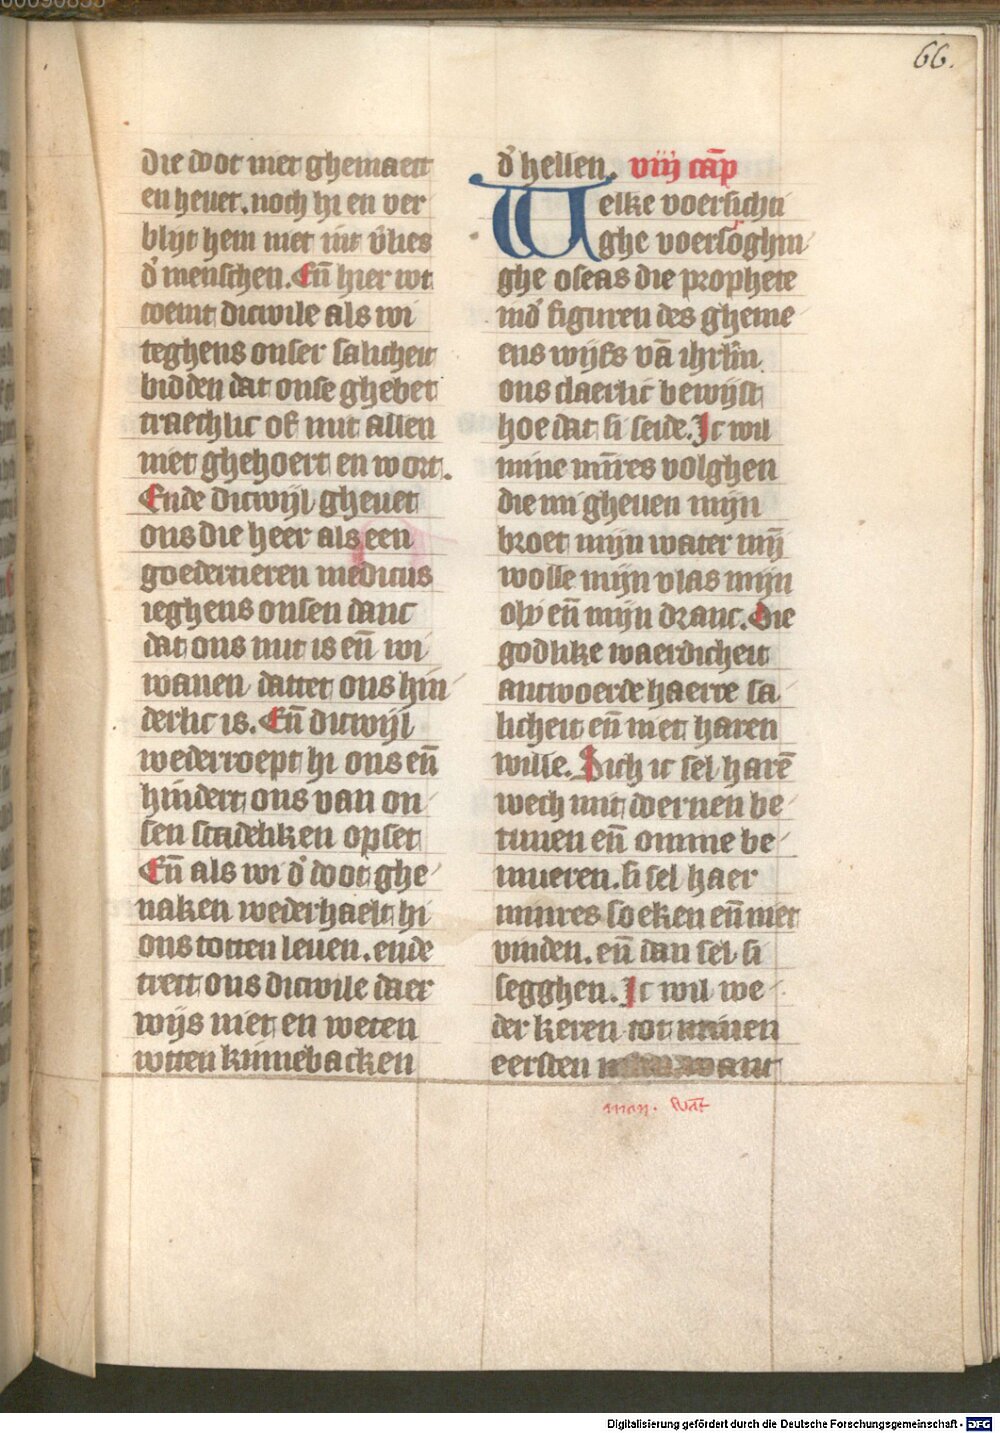 66.
die doot niet ghemaect
en heuet. noch hi en ver
blijt hem niet int v̉lies
d̉ menschen. Eñ hier wt
coemt dicwile als wi
teghens onser salicheit
bidden dat onse ghebet
traechlic of nut allen
niet ghehoert en wort.
Ende dicwijl gheuet
ons die heer als een
goedertieren medicus
ieghens onsen danc
dat ons nut is eñ wi
wanen dattet ons hin
derlic is. Eñ dicwijl
wederroept hi ons eñ
hindert ons van on
sen scadeliken opset
Eñ als wi d̉ doot ghe
naken wederhaelt hi
ons totten leuen. ende
trect ons dicwile daer
wijs niet en weten
wtten kinnebacken
d̉ hellen. viij cap̄
Welke voersichti
ghe voersoghin
ghe oseas die prophete
ind̉ figuren des gheme
ens wijfs vā ihrlm̄
ons claerlic bewijst
hoe dat si seide. Ic wil
mine mīres volghen
die mi gheuen mijn
broet mijn water mȳ
wolle mijn vlas mijn
oly eñ mijn dranc. Die
godlike waerdicheit
antwoerde haerre sa
licheit eñ niet haren
wille. Sich ic sel harē
wech mit doernen be
tunen eñ omme be
mueren. si sel haer
minres soeken eñ niet
vinden. eñ dan sel si
segghen. Ic wil we
der keren tot minen
eersten want
man. wāt
Digitalisierung gefördert durch die Deutsche Forschungsgemeinschaft - DFG